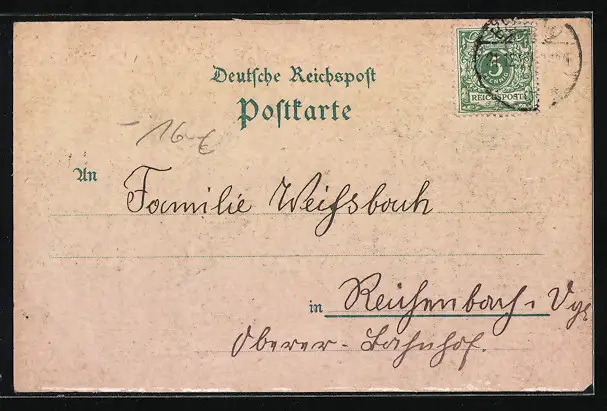 5
REICHSPOST
Deutsche Reichspost
Postkarte
An
Familie Weißbach
in Reichenbach i. Vgl
Oberer-Bahnhof.